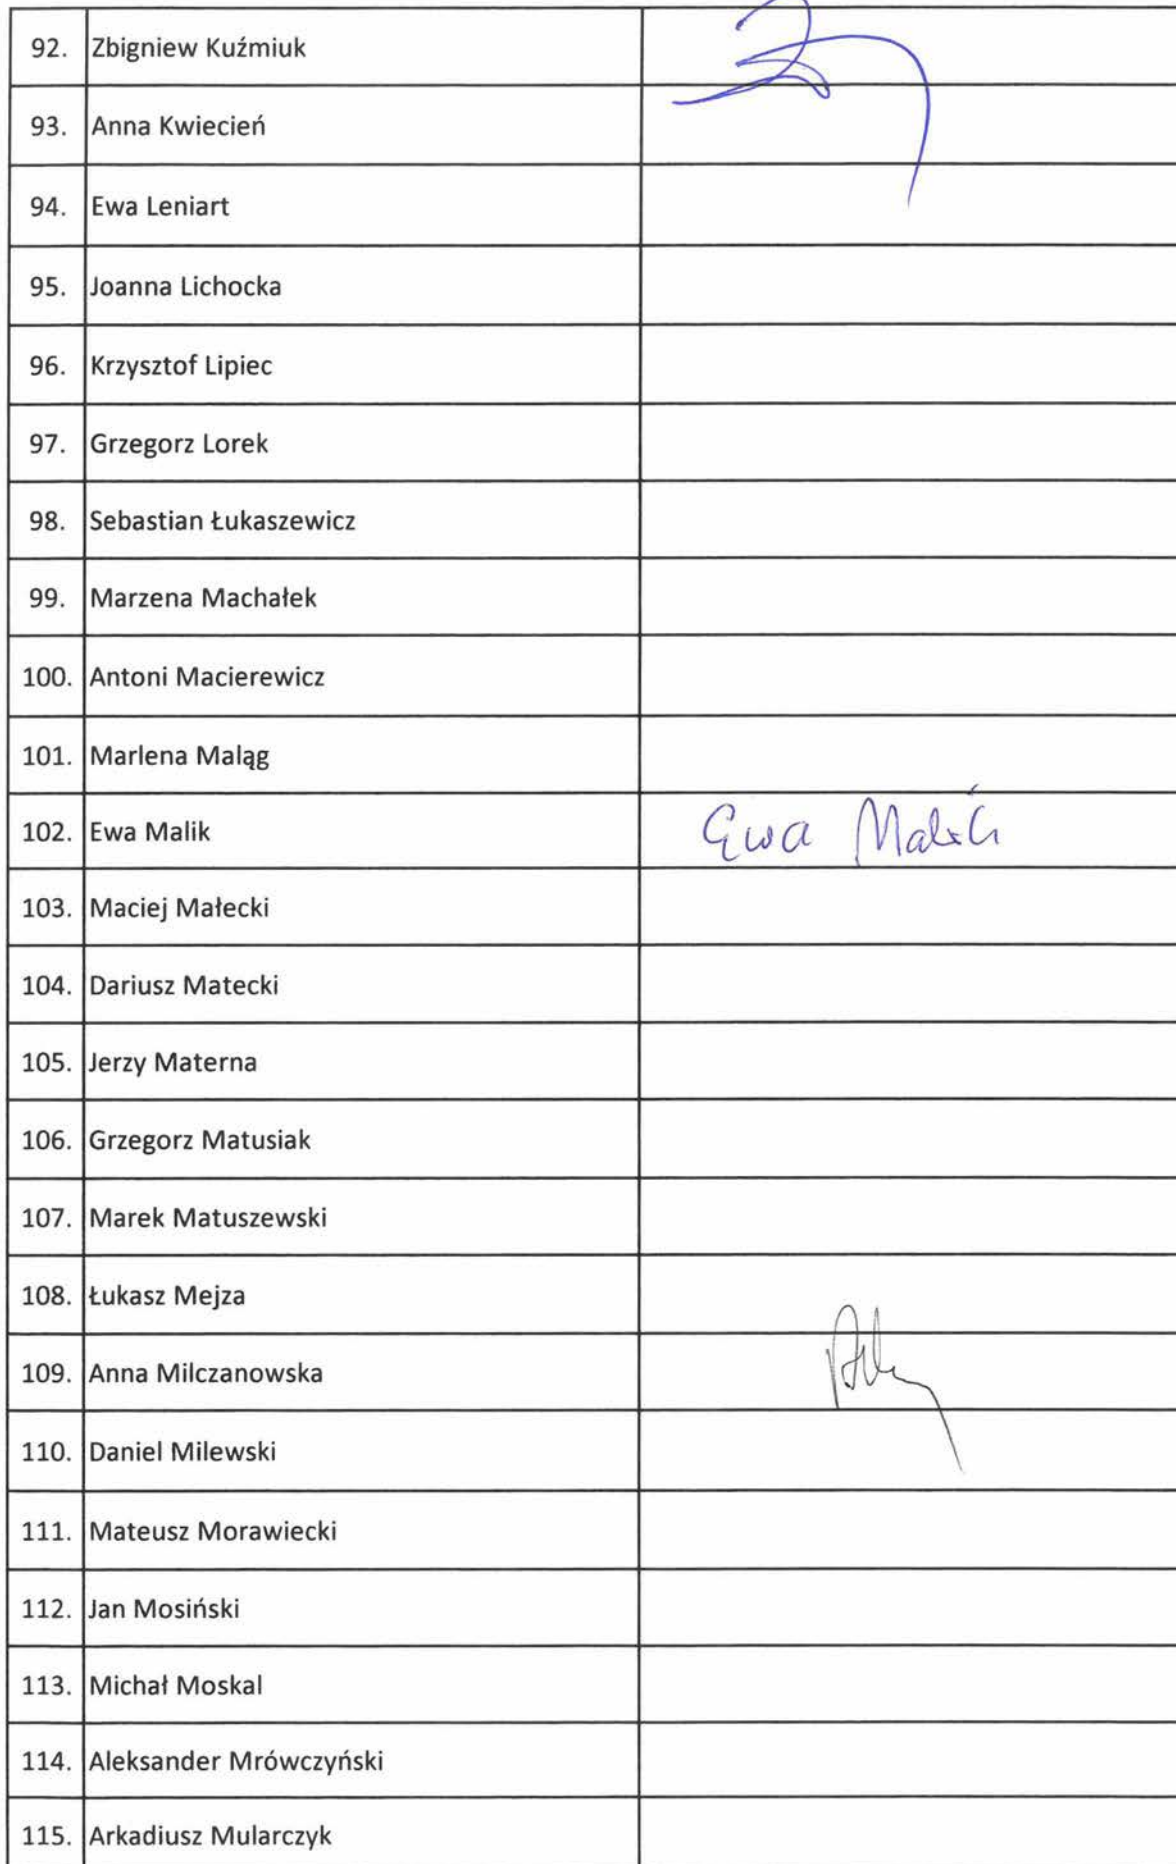 92. Zbigniew Kuźmiuk
93. Anna Kwiecień
94. Ewa Leniart
95. Joanna Lichocka
96. Krzysztof Lipiec
97. Grzegorz Lorek
98. Sebastian Łukaszewicz
99. Marzena Machałek
100. Antoni Macierewicz
101. Marlena Maląg
102. Ewa Malik Ewa Malik
103. Maciej Małecki
104. Dariusz Matecki
105. Jerzy Materna
106. Grzegorz Matusiak
107. Marek Matuszewski
108. Łukasz Mejza
109. Anna Milczanowska
110. Daniel Milewski
111. Mateusz Morawiecki
112. Jan Mosiński
113. Michał Moskal
114. Aleksander Mrówczyński
115. Arkadiusz Mularczyk